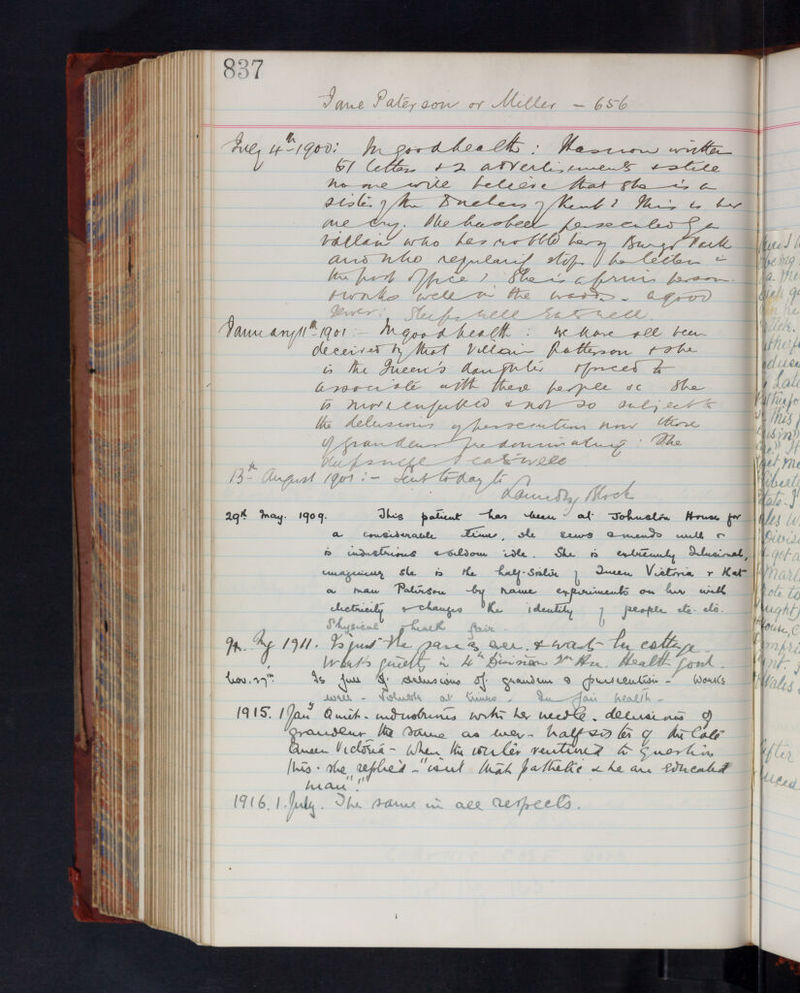 837
Jane Paterson or Miller - 656
July 4th 1900: In good health: Has now written
51 letters & 2 advertisements & still
no one will believe that she is a
sister of the Duchess of Kent! This is her
one cry. She has been persecuted by a
villain who has robbed her of
and who regularly stops the letters in
the post office! She is a person
& works well in the wards - a good
sewer. Sleeps well Eats well.
January 11th 1901 - In good health: We have all been
deceived by that villain Patterson & she
is the Queen's daughter & forced to
associate with these people &c She
is more & not so subject to
the delusions of persecution now those
of grandeur predominating: She
sleeps well & eats well
13th August 1901:- Sent today to
Laundry Block
29th May. 1909. This patient has been at Johnston House for
a considerable time, she sews & mends well &
is industrious & seldom idle. She is extremely delusional,
imagining she is the half-sister of Queen Victoria & that
a man Paterson by name experiments on her with
electricity & changes the identity of people etc. etc.
Physical health fair.
1911. Is just the same as ever. &
Works quietly in 4th Division Health good.
Nov. 27th Is full of delusions of grandeur & persecution - Works
well - at times. In fair health.
1915. 1 Jany Quiet. industrious with her needle. delusions of
grandeur the same as ever - half sister of the late
Queen Victoria - When the writer ventured to question
this. she replied - "isn't that pathetic & he an educated
man"!
1916. 1. July. The same in all respects.